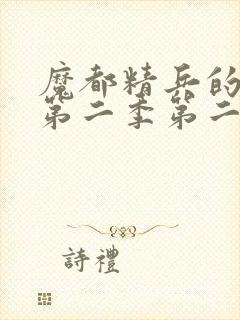 魔都精兵的
第二季第二
詩禮